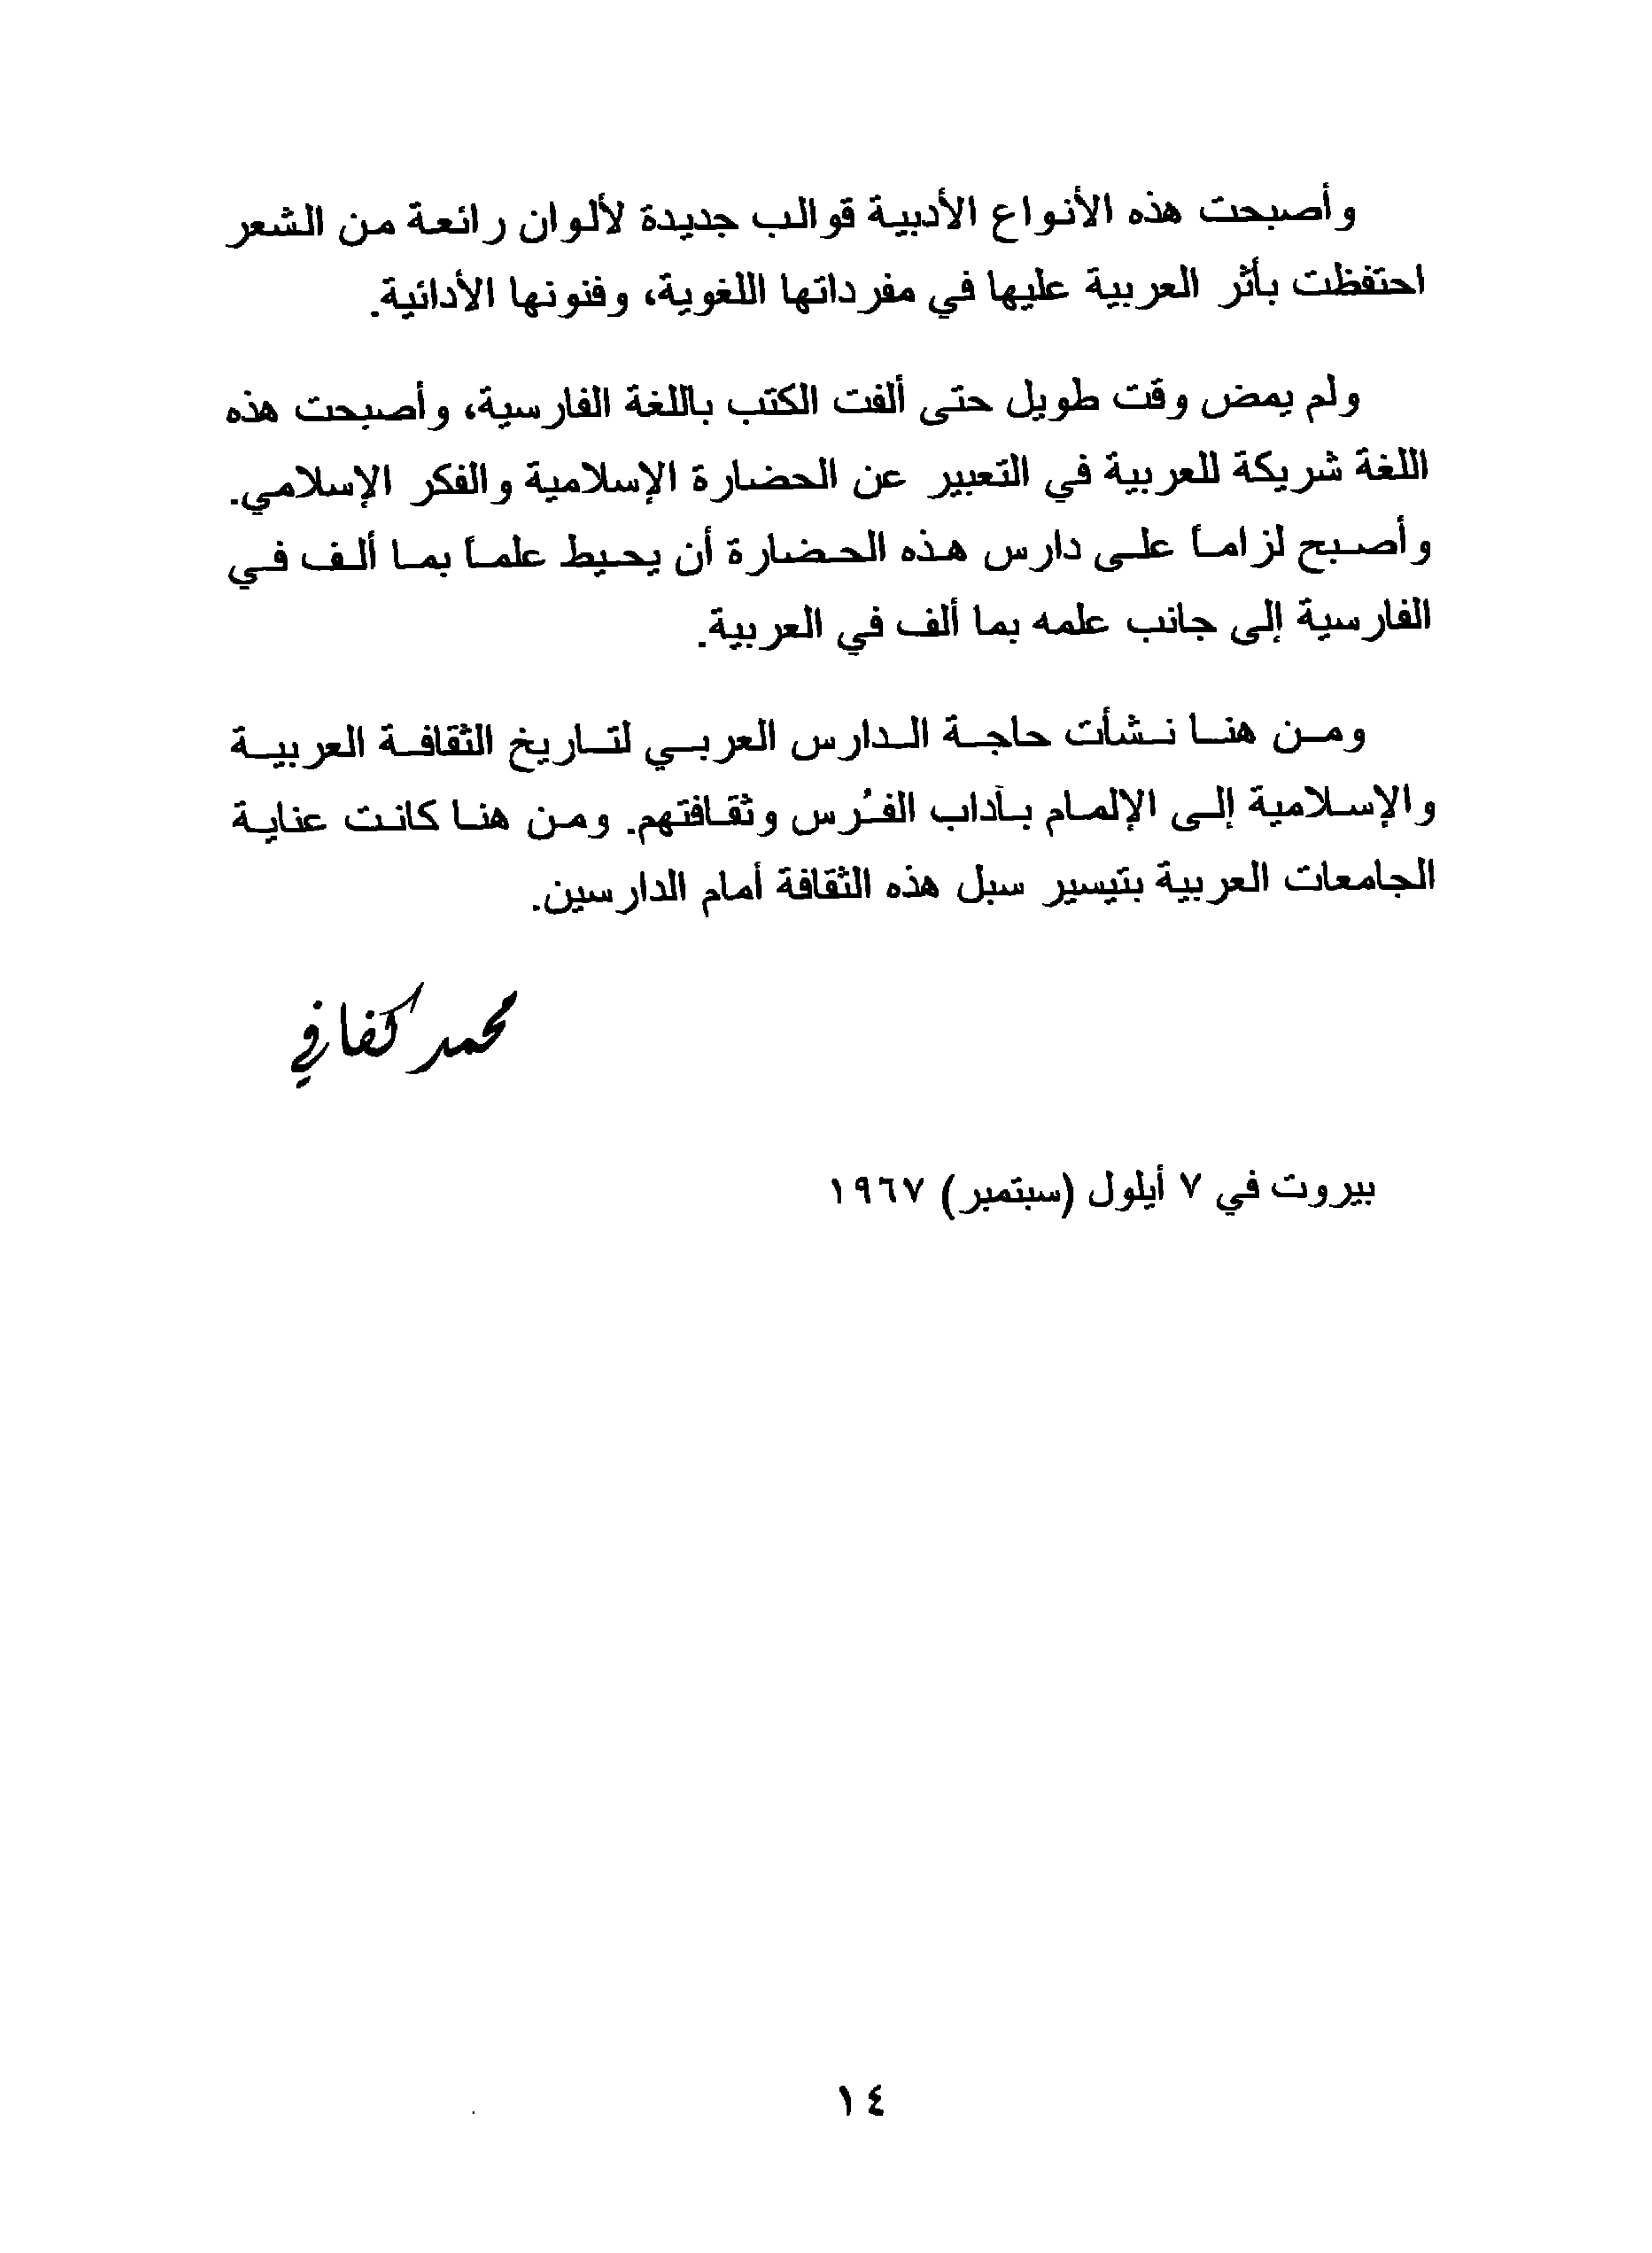 وأصبحت هذه الأنواع الأدبية قوالب جديدة لألوان رائعة من الشعر
احتفظت بأثر العربية عليها في مفرداتها اللغوية، وفنونها الأدائية.
ولم يمض وقت طويل حتى ألفت الكتب باللغة الفارسية، وأصبحت هذه
اللغة شريكة للعربية في التعبير عن الحضارة الإسلامية والفكر الإسلامي.
وأصبح لزاماً على دارس هذه الحضارة أن يحيط علماً بما ألف في
الفارسية إلى جانب علمه بما ألف في العربية.
ومن هنا نشأت حاجة الدارس العربي لتاريخ الثقافة العربية
والإسلامية إلى الإلمام بآداب الفُرس وثقافتهم. ومن هنا كانت عناية
الجامعات العربية بتيسير سبل هذه الثقافة أمام الدارسين.
محمد كفافي
بيروت في ٧ أيلول (سبتمبر) ١٩٦٧
١٤